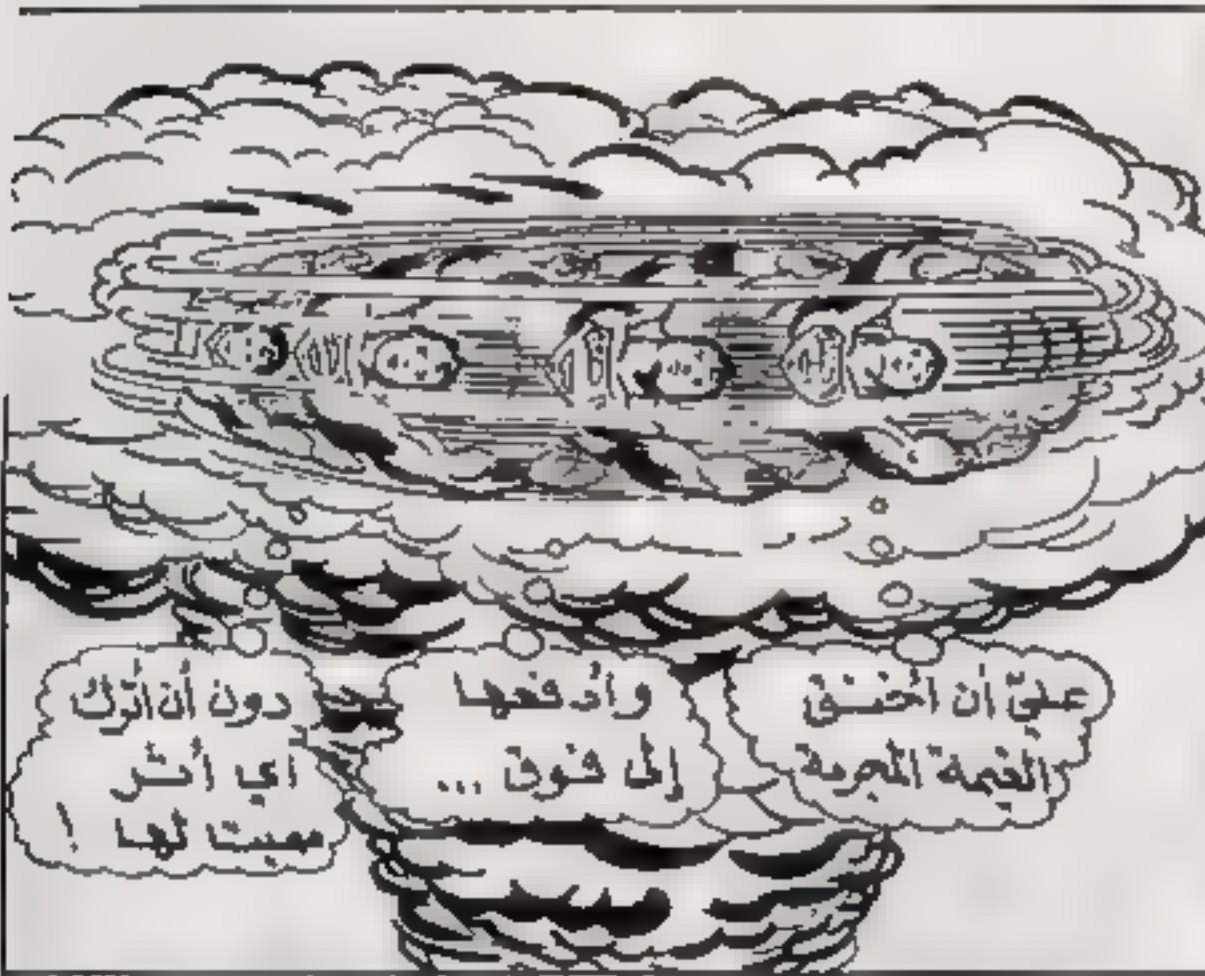 عليّ أن أخنق
الغيمة المجرمة
وأدفعها
إلى فوق ...
دون أن أترك
أي أثر
مميت لها !